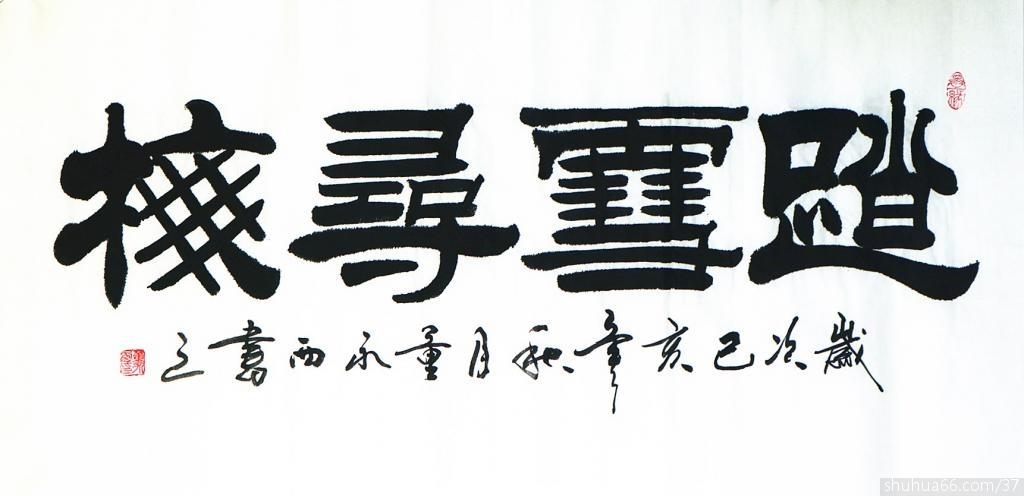 踏雪尋梅
歲次己亥年秋月董永西書之
shuhua66.com/37